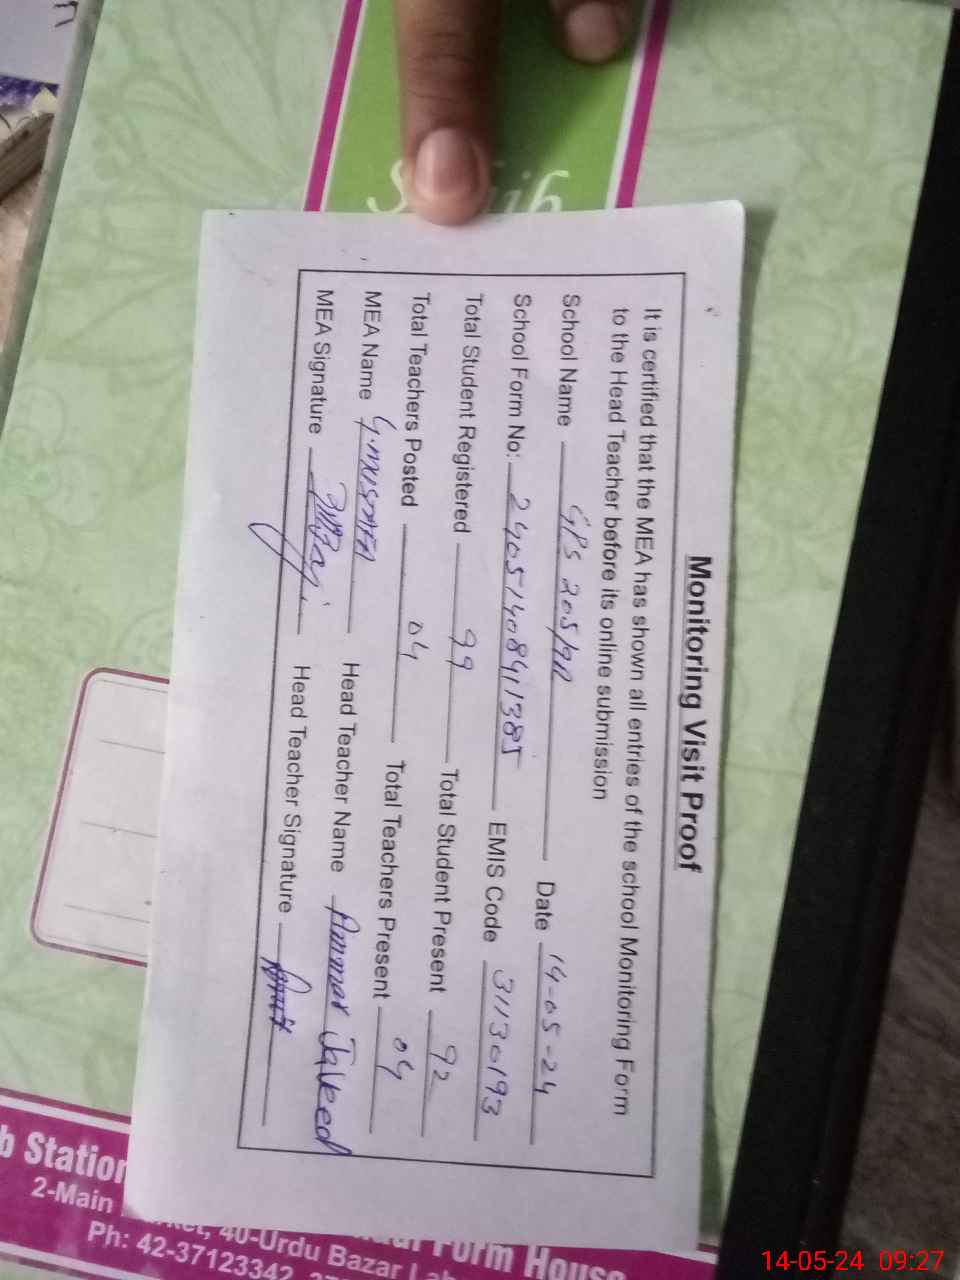 Monitoring Visit Proof
It is certified that the MEA has shown all entries of the school Monitoring Form
to the Head Teacher before its online submission
School Name GPS 205/9R Date 14-05-24
School Form No: 2405140841385 EMIS Code 31130193
Total Student Registered 99 Total Student Present 92
Total Teachers Posted 04 Total Teachers Present 04
MEA Name G.MUSTAFA Head Teacher Name Ammar Javeed
MEA Signature Head Teacher Signature
b Station
Form House
2-Main
40-Urdu Bazar
Ph: 42-37123342
14-05-24 09:27